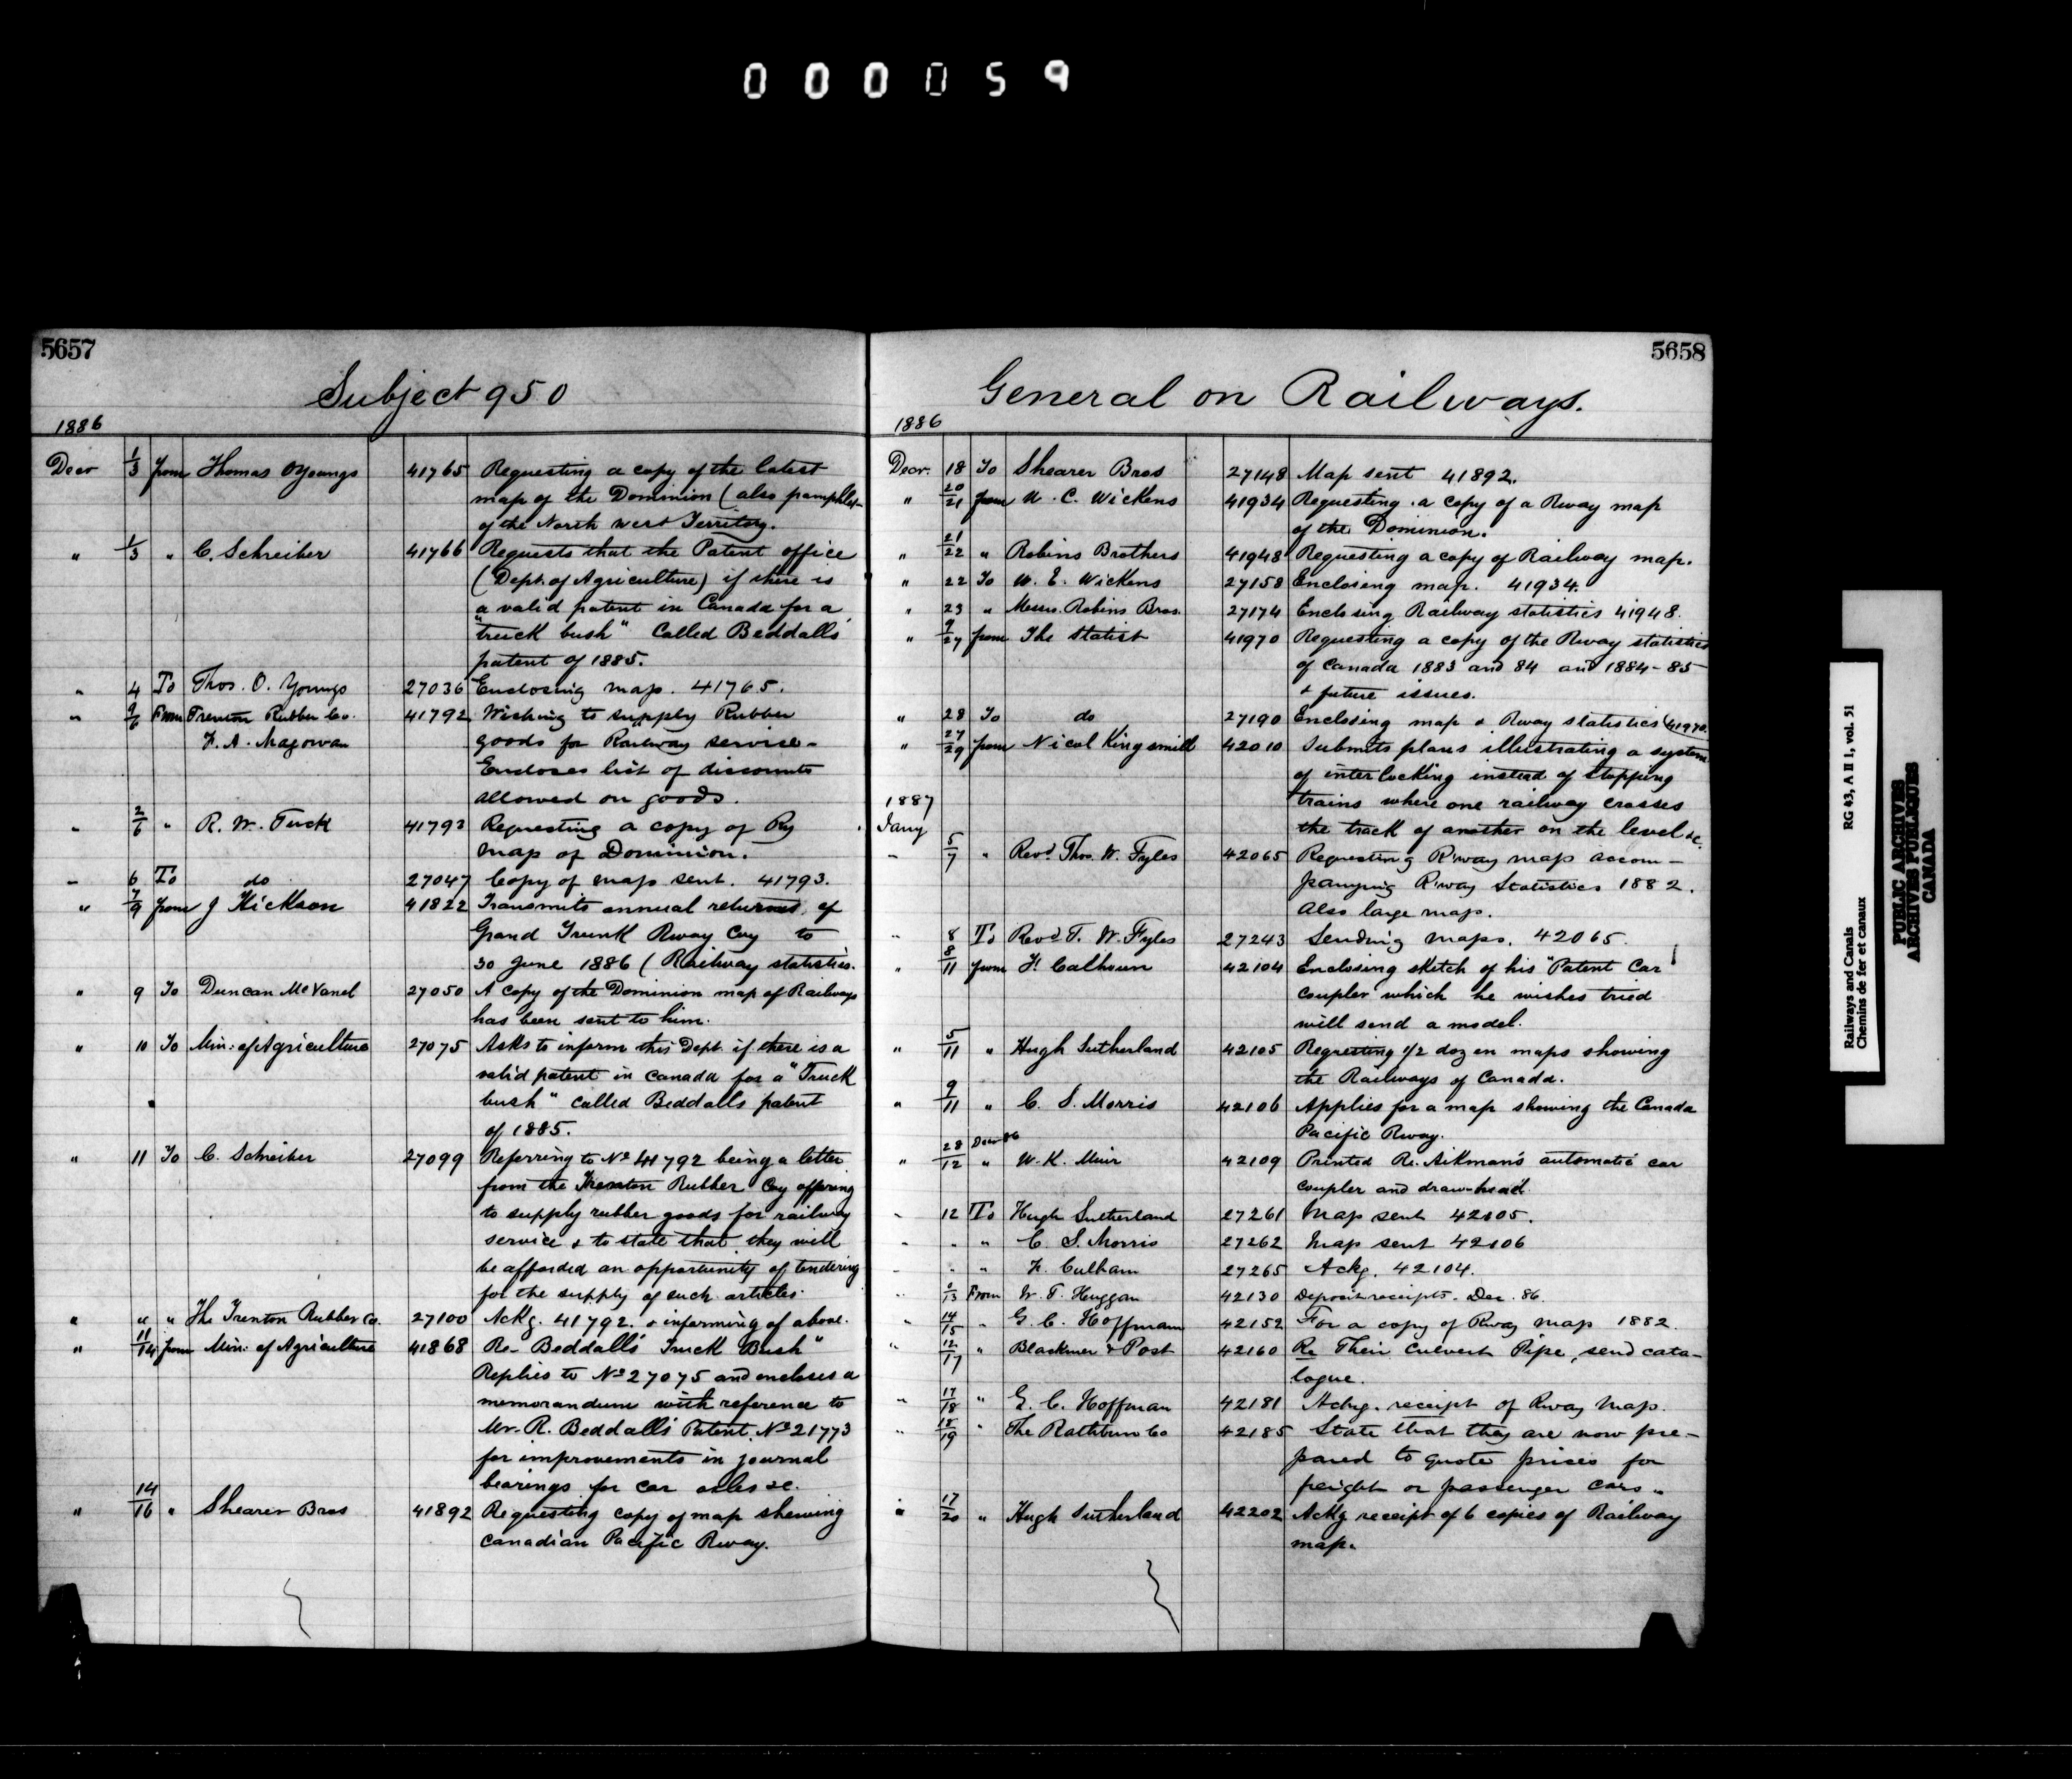 000059
5657
Subject 950
1886
Decr 1/3 from Thomas O Youngs 41765 Requesting a copy of the latest
map of the Dominion (also pamphlet
of the North West Territory.
" 1/3 " C. Schreiber 41766 Requests that the Patent office
(Dept. of Agriculture) if there is
a valid patent in Canada for a
"truck bush" called Beddalls
patent of 1885.
" 4 To Thos. O. Youngs 27036 Enclosing map. 41765.
" From Trenton Rubber Co. 41792 Wishing to supply Rubber
F. A. Magowan goods for Railway service -
Encloses list of discounts
allowed on goods.
" 2/6 " R. W. Tuck 41793 Requesting a copy of Ry
map of Dominion.
" 6 To do 27047 Copy of map sent. 41793.
" 7/9 from J Hickson 41822 Transmits annual returns of
Grand Trunk Rway Coy to
30 June 1886 (Railway statistics.
" 9 To Duncan McVanel 27050 A copy of the Dominion map of Railways
has been sent to him.
" 10 To Min: of Agriculture 27075 Asks to inform this Dept. if there is a
valid patent in Canada for a "Truck
bush" called Beddalls patent
of 1885.
" 11 To C. Schreiber 27099 Referring to No 41792 being a letter
from the Trenton Rubber Coy offering
to supply rubber goods for railway
service & to state that they will
be afforded an opportunity of tendering
for the supply of such articles.
" " " The Trenton Rubber Co. 27100 Ackg. 41792. & informing of above.
" 11/14 from Min: of Agriculture 41868 Re- Beddalls Truck Bush"
Replies to No 27075 and encloses a
memorandum with reference to
Mr. R. Beddalls Patent. No 21773
for improvements in journal
bearings for car axles &c.
" 14/16 " Shearer Bros 41892 Requesting copy of map shewing
Canadian Pacific Rway.
5658
General on Railways.
1886
Decr. 18 To Shearer Bros 27148 Map sent 41892.
" 20/21 from W. C. Wickens 41934 Requesting a copy of a Rway map
of the Dominion.
" 21/22 " Robins Brothers 41948 Requesting a copy of Railway map.
" 22 To W. E. Wickens 27158 Enclosing map. 41934.
" 23 " Messrs. Robins Bros. 27174 Enclosing Railway statistics 41948.
" 9/27 from The Statist 41970 Requesting a copy of the Rway statistics
of Canada 1883 and 84 and 1884-85
& future issues.
" 28 To do 27190 Enclosing map & Rway statistics (41970.
" 27/29 from Nicol Kingsmill 42010 Submits plans illustrating a system
of interlocking instead of stopping
1887 trains where one railway crosses
Jany the track of another on the level &c.
" 5/7 " Revd. Thos. W. Fyles 42065 Requesting R'way map accom-
panying R'way Statistics 1882.
Also large map.
" 8 To Revd. T. W. Fyles 27243 Sending maps. 42065.
" 8/11 from F. Calhoun 42104 Enclosing sketch of his "Patent Car
coupler which he wishes tried
will send a model.
" 5/11 " Hugh Sutherland 42105 Requesting 1/2 dozen maps showing
the Railways of Canada.
" 9/11 " C. S. Morris 42106 Applies for a map showing the Canada
Pacific Rway.
" 28 Decr 86/12 " W. K. Muir 42109 Printed Re. Aikman's automatic car
coupler and draw-head.
" 12 To Hugh Sutherland 27261 Map sent 42105.
" " " C. S. Morris 27262 Map sent 42106
" " " F. Culham 27265 Ackg. 42104.
" From W. T. Huggan 42130 Deposit receipts. Dec. 86.
" 14/15 " G. C. Hoffmann 42152 For a copy of Rway map 1882.
" 12/17 " Blackmer & Post 42160 Re Their Culvert Pipe, send cata-
logue.
" 17/18 " G. C. Hoffman 42181 Ackg. receipt of Rway map.
" 18/19 " The Rathbun Co 42185 State that they are now pre-
pared to quote prices for
freight or passenger cars.
" 17/20 " Hugh Sutherland 42202 Ackg receipt of 6 copies of Railway
map.
Railways and Canals RG 43, A II 1, vol. 51
Chemins de fer et canaux
PUBLIC ARCHIVES
ARCHIVES PUBLIQUES
CANADA